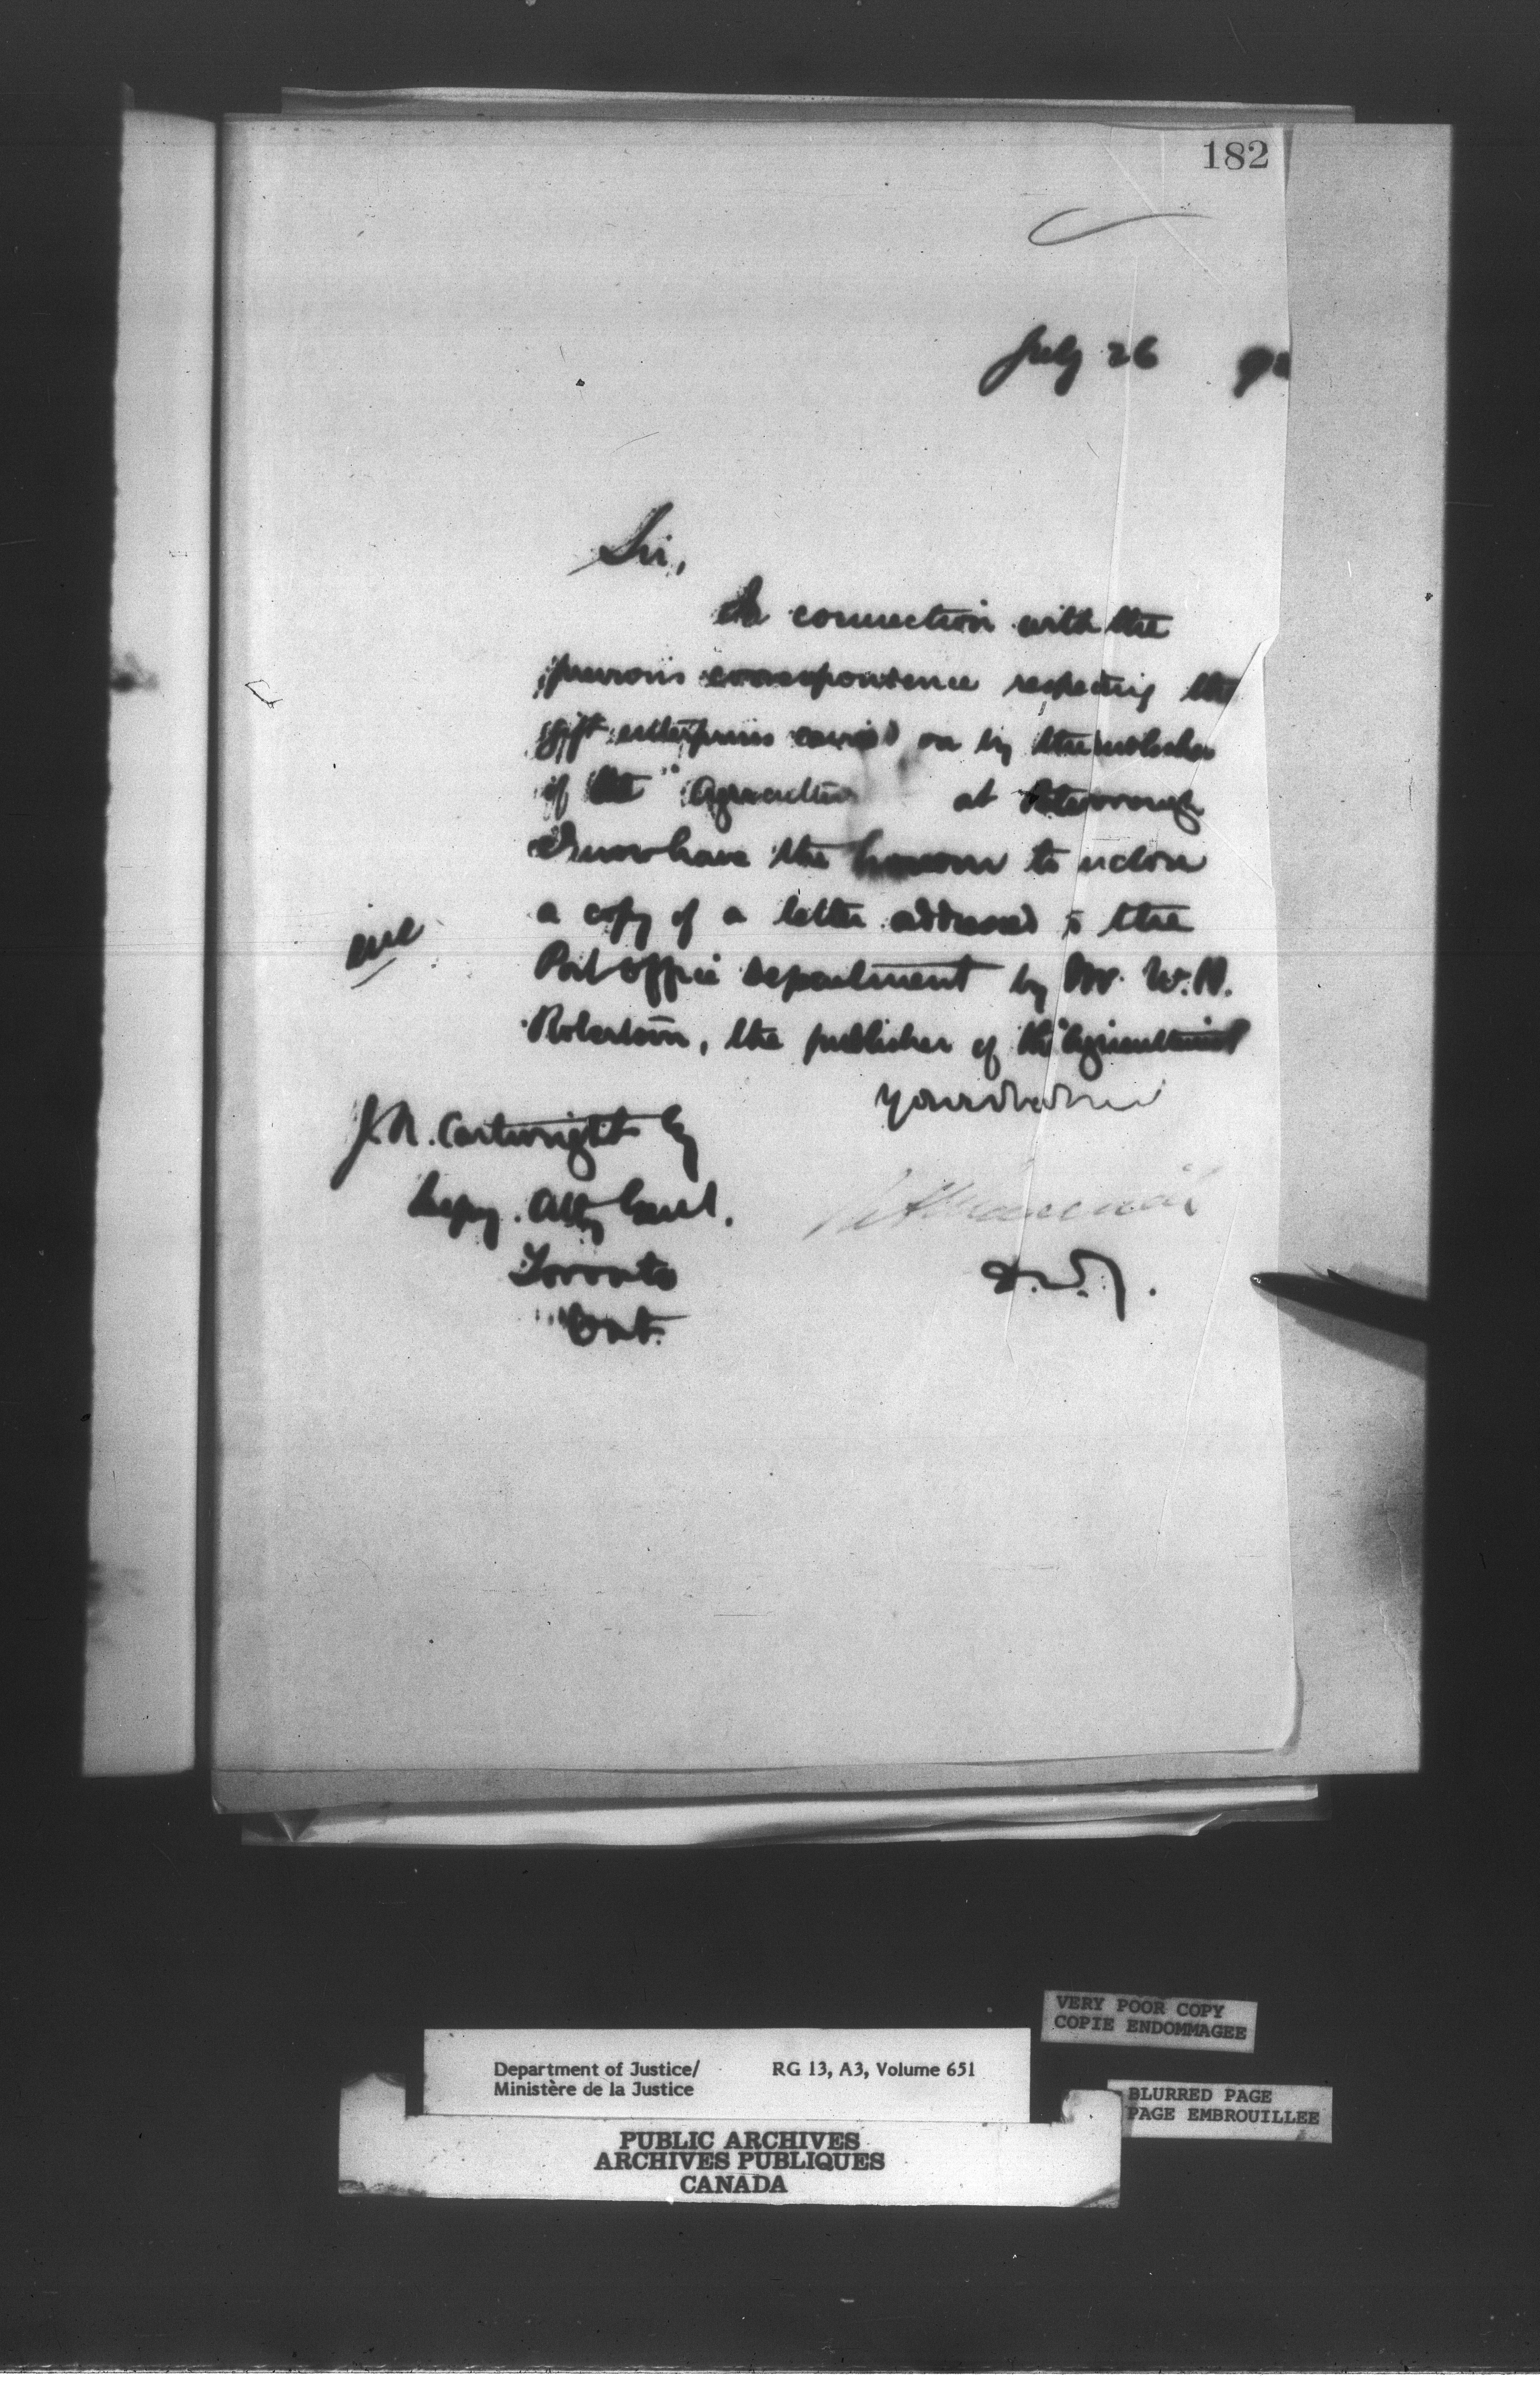 182
July 26 92
Sir,
In connection with the
previous correspondence respecting the
gift enterprises carried on by the publisher
of the "Agricultur at Peterborough
I now have the honour to enclose
a copy of a letter addressed to the
enc
Post office department by Mr. W.H.
Robertson, the publisher of the "Agriculturist
J.R. Cartwright Esq
Depy. Atty Genl.
Toronto
Ont.
D.M.J.
VERY POOR COPY
COPIE ENDOMMAGEE
Department of Justice/ RG 13, A3, Volume 651
Ministère de la Justice
BLURRED PAGE
PAGE EMBROUILLEE
PUBLIC ARCHIVES
ARCHIVES PUBLIQUES
CANADA